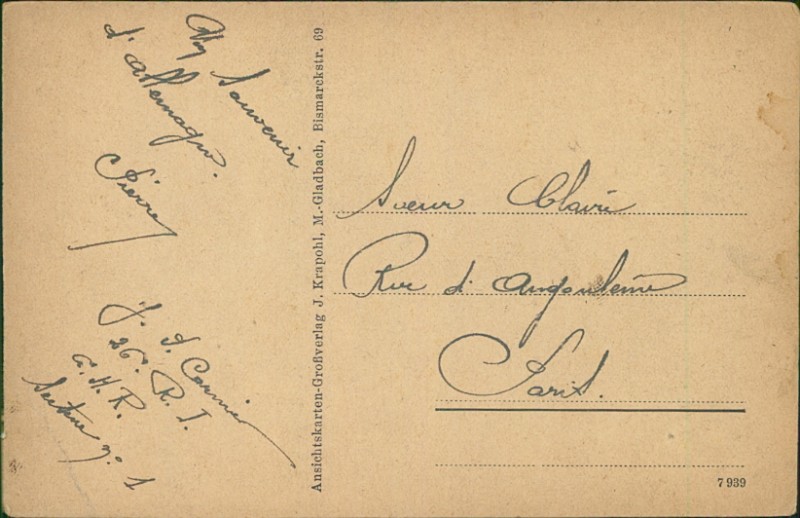 Souvenir
d'allemagne.
Pierre
26e R. I.
Secteur no. 1
Ansichtskarten-Großverlag J. Krapohl, M.-Gladbach, Bismarckstr. 69
Soeur Claire
Rue d'Angoulème
Paris.
7 939